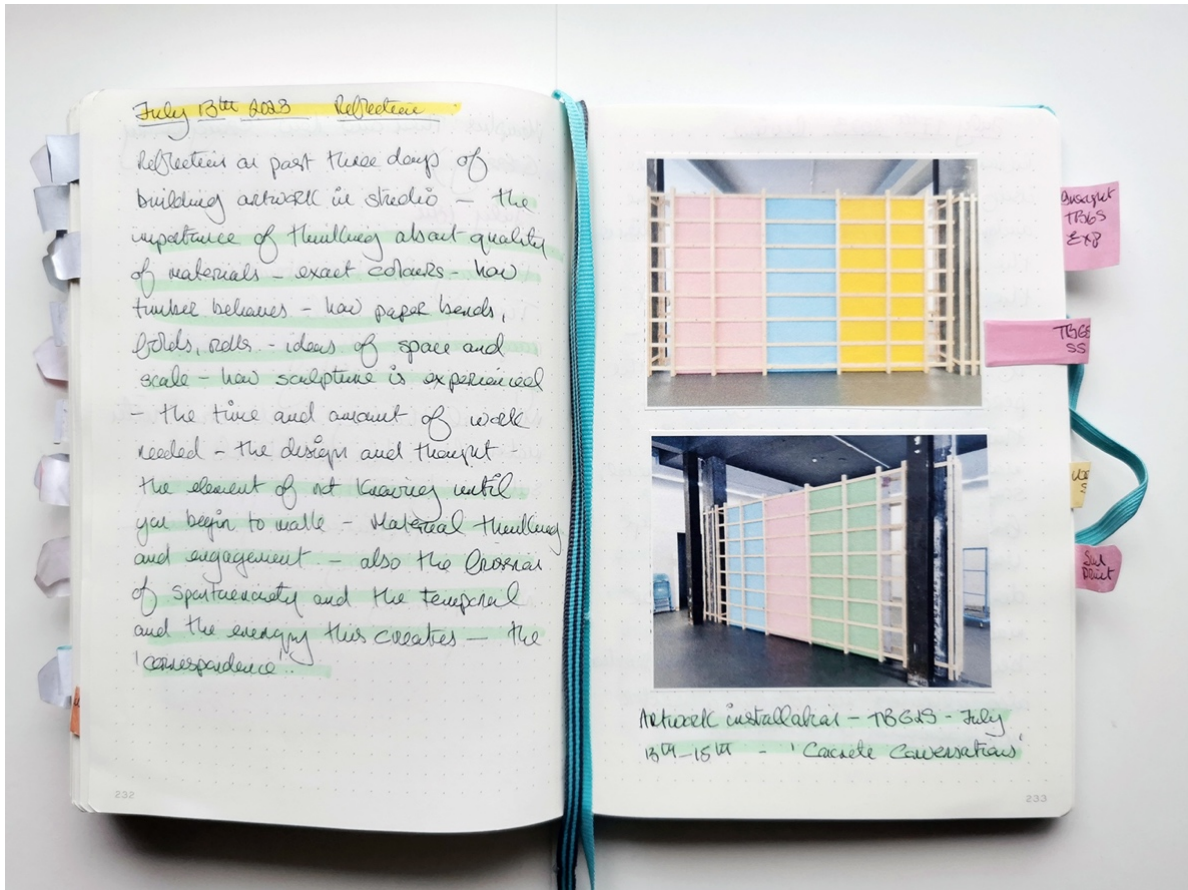 July 13th 2023 Reflection
Reflection on past three days of
building artwork in studio – the
importance of thinking about quality
of materials – exact colours – how
timber behaves – how paper bends,
folds, rolls – ideas of space and
scale – how sculpture is experienced
– the time and amount of work
needed – the design and thought –
the element of not knowing until
you begin to make – Material thinking
and engagement – also the
of spontaneity and the temporal
and the energy this creates – the
'correspondence'.
232
TBGS
SS
Artwork installation – TBG&S – July
13th–15th – 'Concrete Conversations'
233